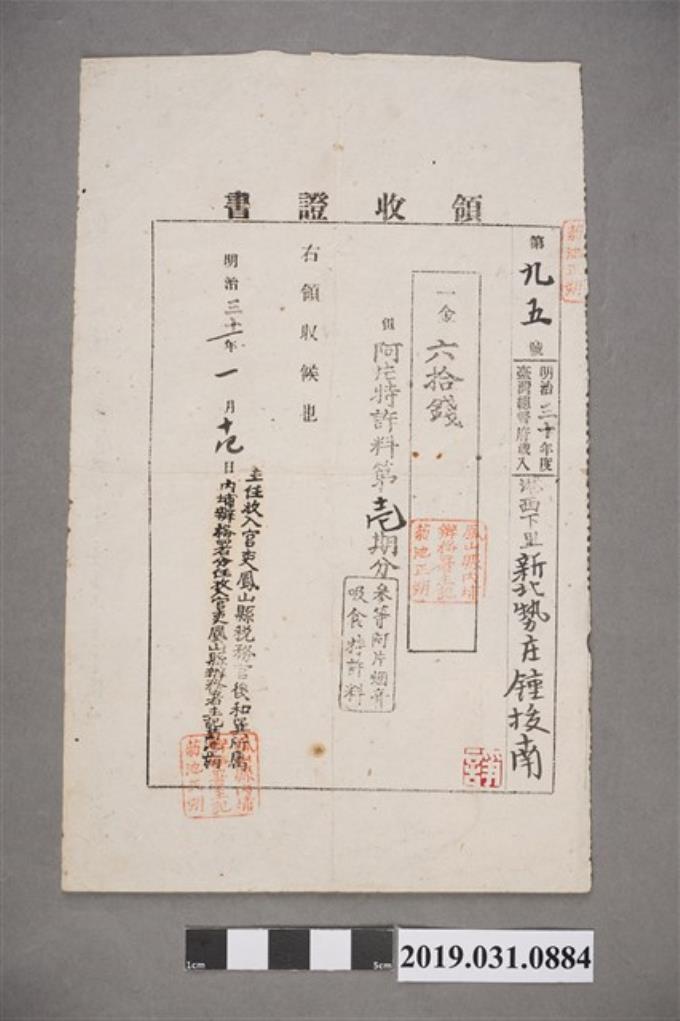 領收證書
第九五號
明治三十年度
臺灣總督府歲入
港西下里新北勢庄鍾拔南
一金六拾錢
但阿片特許料第壱期分
參等阿片烟膏
吸食特許料
右領収候也
明治三十一年一月十九日
主任收入官吏鳳山縣稅務官後和
內埔辦務署分任收入官吏鳳山縣辦務署主記
鳳山縣內埔
辦務署主記
菊池正朔
菊池正朔
鳳山縣內埔
辦務署主記
菊池正朔
1cm
5cm
2019.031.0884